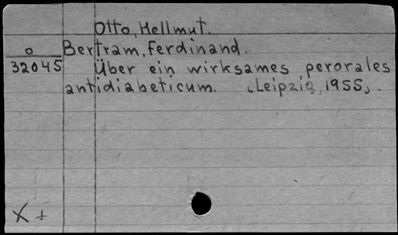 Otto, Hellmut.
o Bertram, Ferdinand.
32045 Über ein wirksames perorales
antidiabeticum. (Leipzig, 1955).
X +